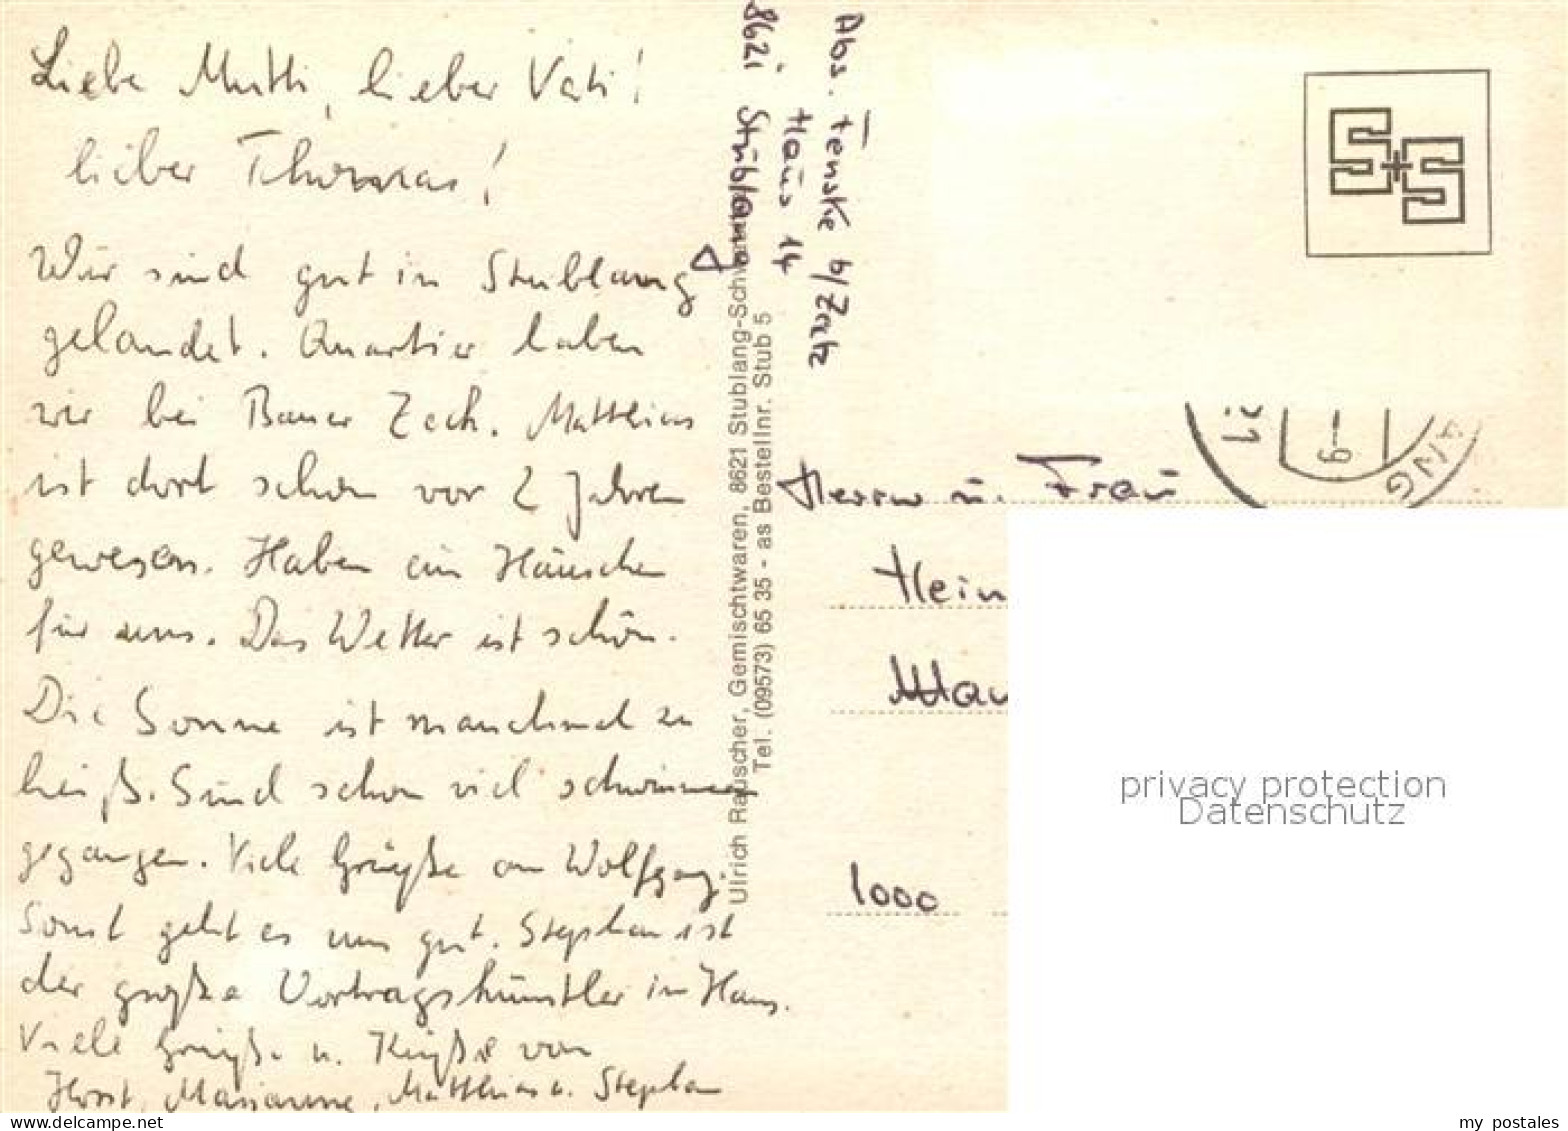 Liebe Mutti, lieber Vati!
lieber Thomas!
Wir sind gut in Stublang
gelandet. Quartier haben
wir bei Bauer Zach. Matthias
ist dort schon vor 2 Jahren
gewesen. Haben ein Häuschen
für uns. Das Wetter ist schön.
Die Sonne ist manchmal zu
heiß. Sind schon viel schwimmen
gegangen. Viele Grüße an Wolfgang.
Sonst geht es uns gut. Stephan ist
der große Vortragskünstler im Haus.
Viele Grüße u. Küße von
Horst, Marianne, Matthias u. Stephan
Abs. Fenske b/Zach
Haus 14
8621 Stublang
Ulrich Rauscher, Gemischtwaren, 8621 Stublang-Schw
Tel. (09573) 65 35 - as Bestellnr. Stub 5
S+S
21
ANG
Herrn u. Frau
Hein
Mau
1000
privacy protection
Datenschutz
my postales